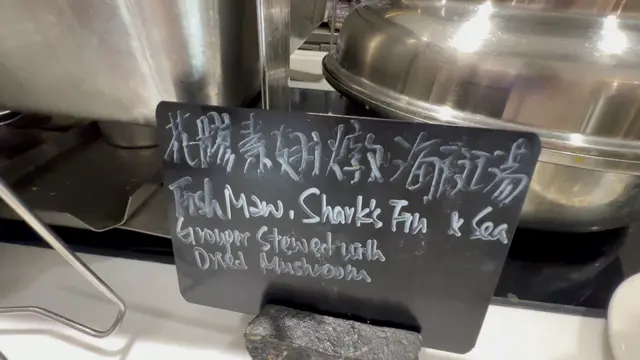 花膠素翅燉海底湯
Fish Maw, Shark's Fin & Sea
Grouper Stewed with
Dried Mushroom